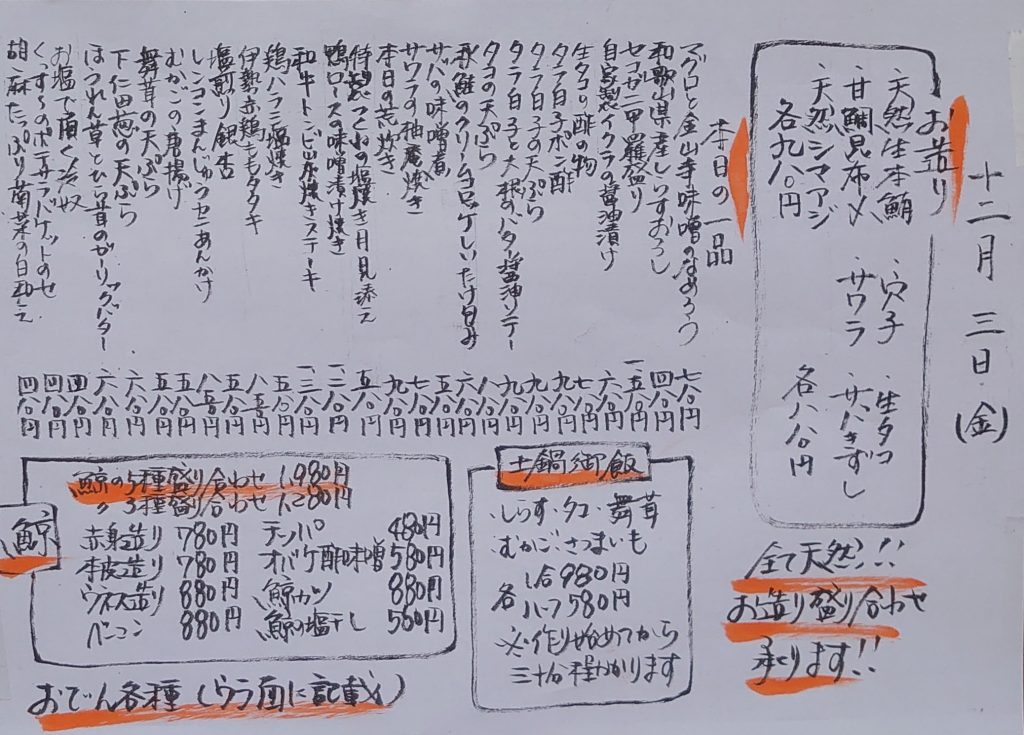 十二月三日(金)
お造り
・天然生本鮪 ・穴子 ・生タコ
・甘鯛昆布〆 ・サワラ ・サバきずし
・天然シマアジ
各九八〇円 各八八〇円
全て天然!!
お造り盛り合わせ
承ります!!
本日の一品
マグロと金山寺味噌のなめろう 七八〇円
和歌山県産しらすおろし 四八〇円
セコガニ甲羅盛り 一五八〇円
自家製イクラの醤油漬け 六八〇円
生タコの酢の物 七八〇円
タラフ白子ポン酢 九八〇円
タラフ白子の天ぷら 九八〇円
タラフ白子と大根のバター醤油ソテー 九八〇円
タコの天ぷら 八八〇円
秋鮭のクリームコロッケしいたけ包み 六八〇円
サバの味噌煮 五八〇円
サワラの柚庵焼き 七八〇円
本日の荒炊き 九八〇円
特製つくねの塩焼き月見添え 五八〇
鴨ロースの味噌漬け焼き 一二八〇円
和牛トンビ炭焼きステーキ 一三八〇円
鶏ハラミ塩焼き 五八〇円
伊勢赤鶏ももタタキ 八五〇円
塩煎り銀杏 五八〇円
レンコンまんじゅうカニあんかけ 八五〇円
むかごの唐揚げ 五八〇円
舞茸の天ぷら 五八〇円
下仁田葱の天ぷら 六八〇円
ほうれん草とひら茸のガーリックバター 六八〇円
お塩で頂く冷奴 四八〇円
ポテサラバケットのせ 四八〇円
胡麻たっぷり菊菜の白和え 四八〇円
土鍋御飯
・しらす・タコ・舞茸
・むかご・さつまいも
各 1合980円
ハーフ580円
※作り始めてから
三十分程かかります
鯨
鯨の5種盛り合わせ 1,980円
〃 3種盛り合わせ 1,280円
赤身造り 780円 テッパ 480円
本皮造り 780円 オバケ酢味噌 580円
ウネス造り 880円 鯨カツ 880円
ベーコン 880円 鯨の塩干し 580円
おでん各種(ウラ面に記載)